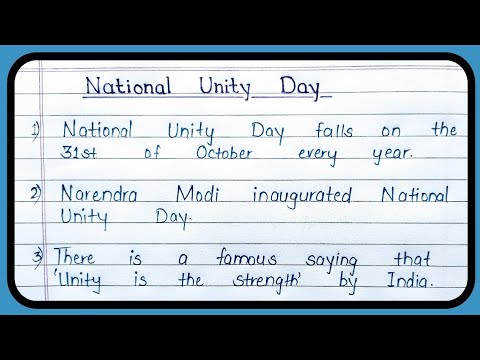 National Unity Day
1) National Unity Day falls on the
31st of October every year.
2) Narendra Modi inaugurated National
Unity Day.
3) There is a famous saying that
'Unity is the strength' by India.